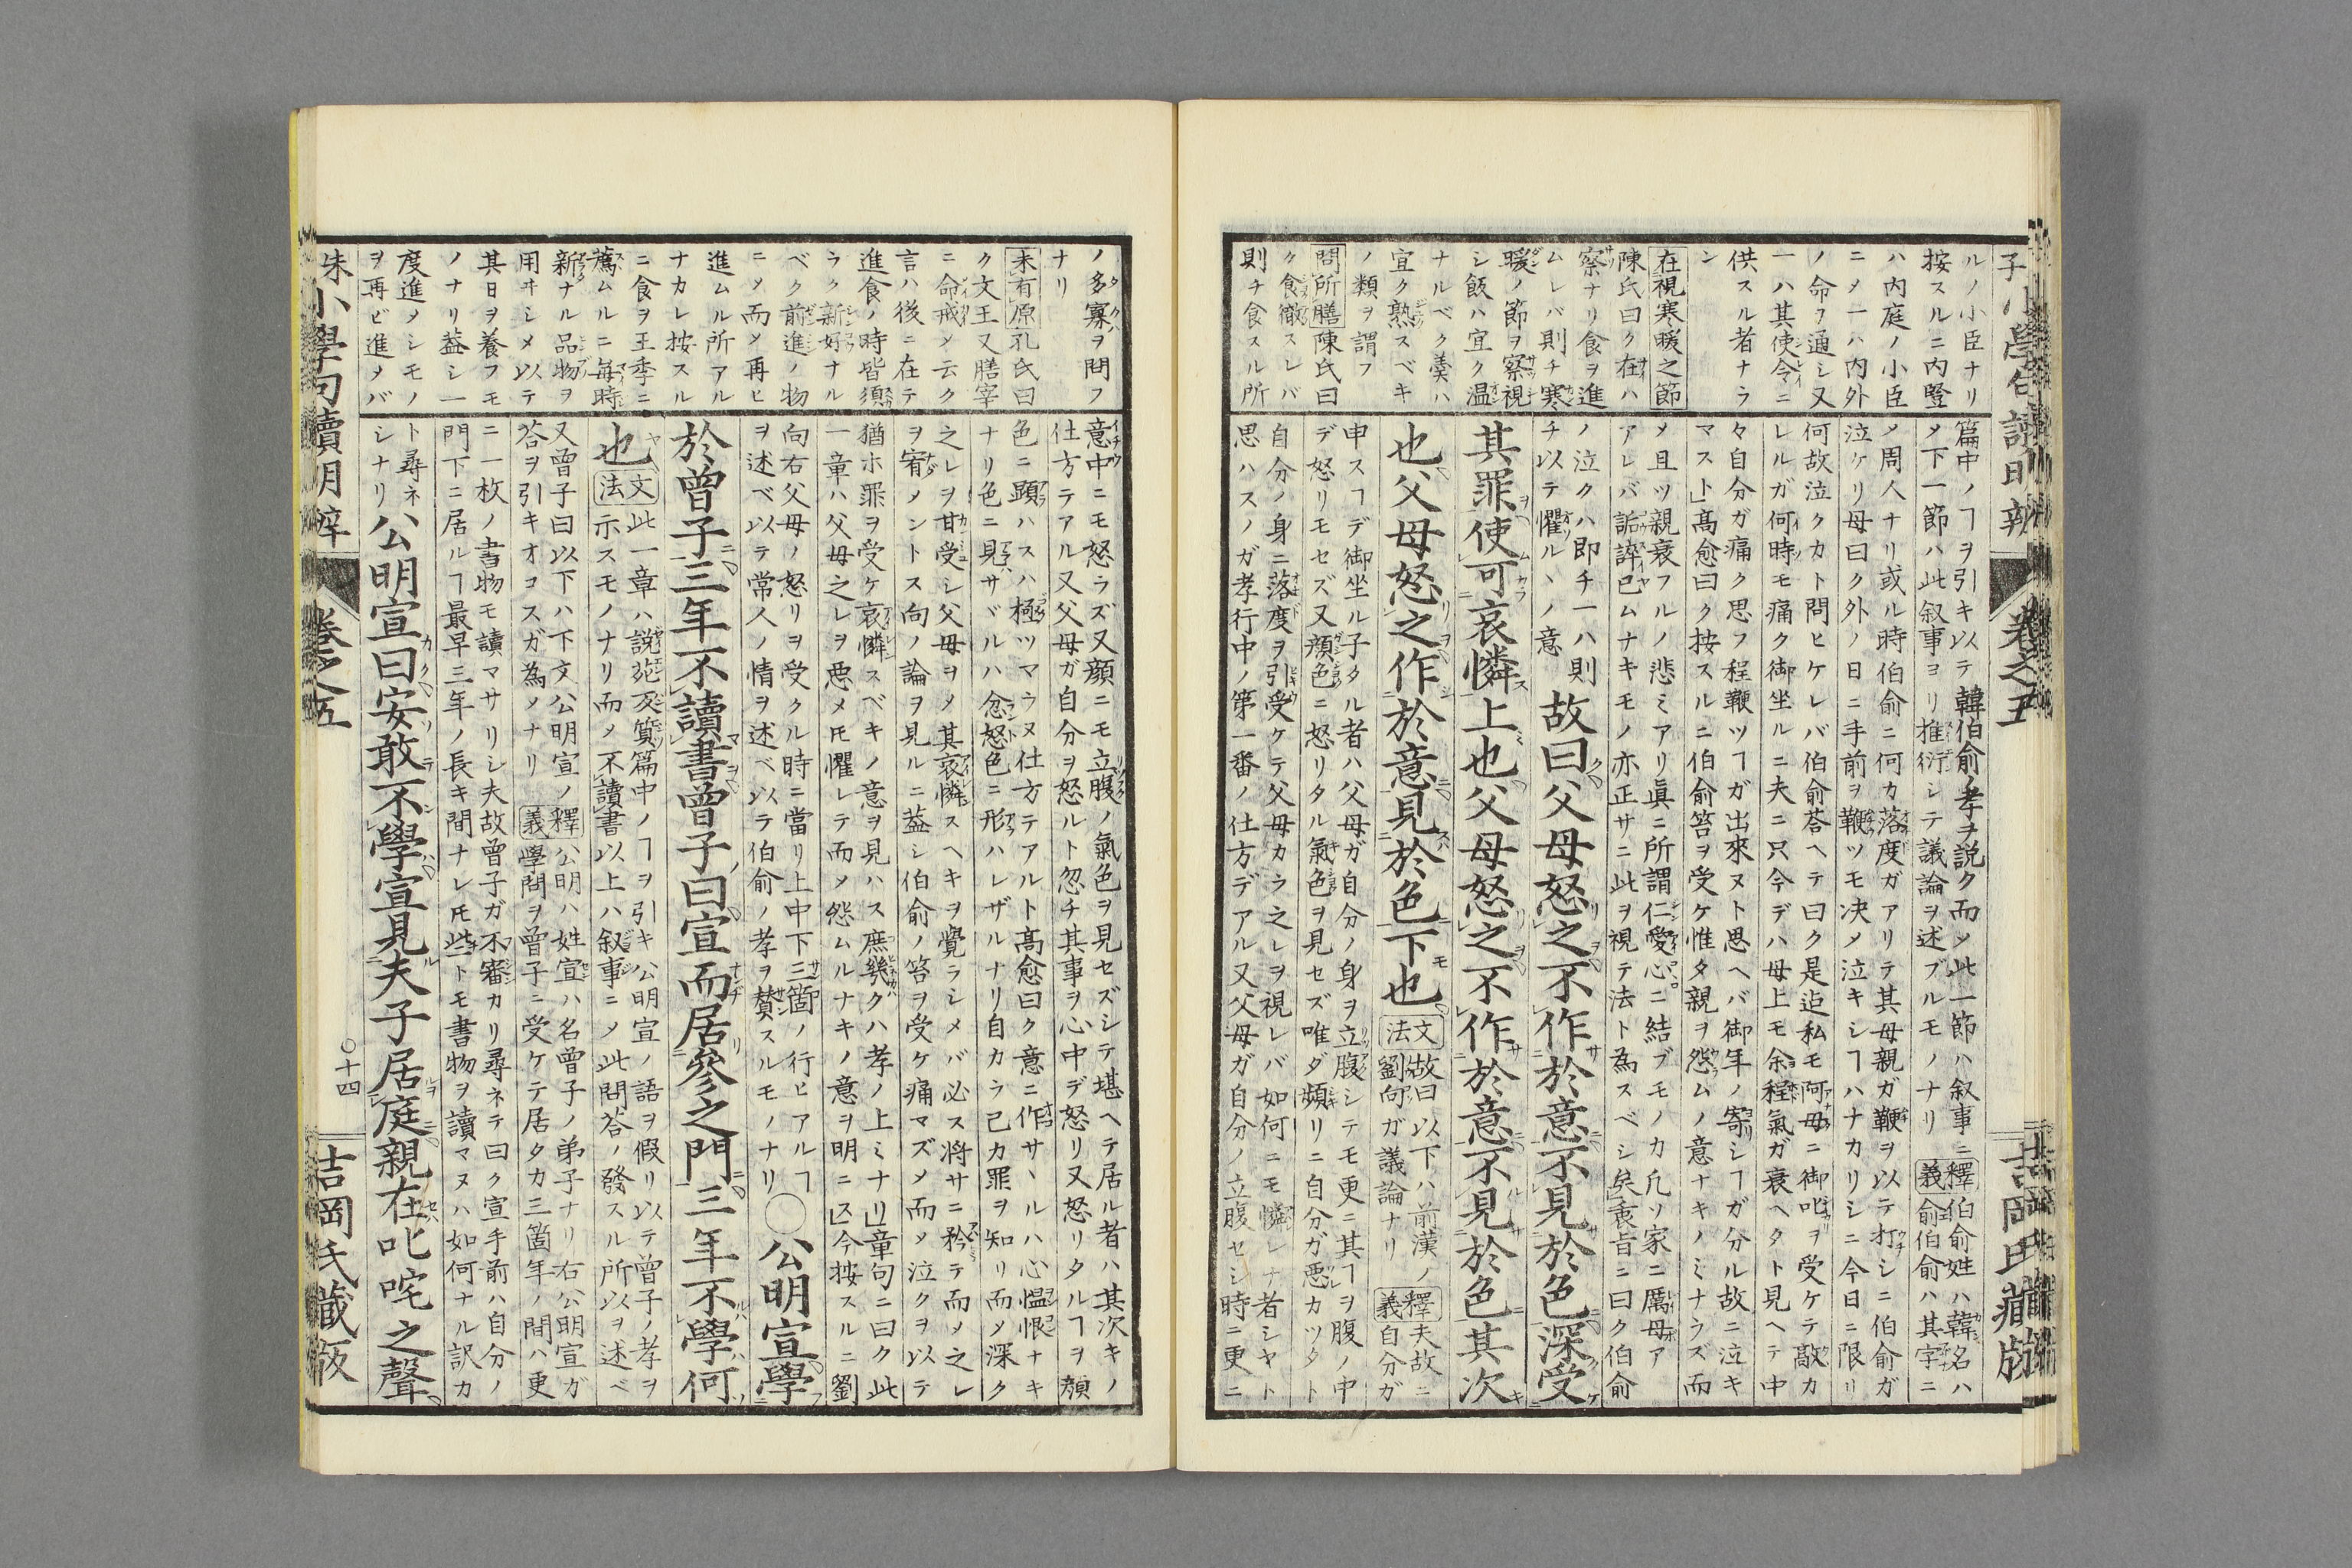 ルノ小臣ナリ
按スルニ内豎
ハ内庭ノ小臣
ニメ一ハ内外
ノ命ヲ通シ又
一ハ其使令ニ
供スル者ナラ
ン
在視寒暖之節
陳氏曰ク在ハ
察ナリ食ヲ進
ムレバ則チ寒
暖ノ節ヲ察視
シ飯ハ宜ク温
ナルベク羹ハ
宜ク熟スベキ
ノ類ヲ謂フ
問所膳陳氏曰
ク食徹スレバ
則チ食スル所
篇中ノヿヲ引キ以テ韓伯俞ノ孝ヲ説ク而メ此一節ハ叙事ニ
メ下一節ハ此叙事ヨリ推衍シテ議論ヲ述ブルモノナリ
釋義伯俞姓ハ韓名ハ
俞伯俞ハ其字ニ
メ周人ナリ或ル時伯俞ニ何カ落度ガアリテ其母親ガ鞭ヲ以テ打シニ伯俞ガ
泣ケリ母曰ク外ノ日ニ手前ヲ鞭ツモ决メ泣キシヿハナカリシニ今日ニ限リ
何故泣クカト問ヒケレバ伯俞荅ヘテ曰ク是迠私モ阿母ニ御叱ヲ受ケテ敲カ
レルガ何時モ痛ク御坐ルニ夫ニ只今デハ母上モ余程氣ガ衰ヘタト見ヘテ中
々自分ガ痛ク思フ程鞭ツヿガ出來ヌト思ヘバ御年ノ寄シヿガ分ル故ニ泣キ
マスト」髙愈曰ク按スルニ伯俞笞ヲ受ケ惟タ親ヲ怨ムノ意ナキノミナラズ而
メ且ツ親衰フルノ悲ミアリ眞ニ所謂仁愛心ニ結ブモノカ凢ソ家ニ厲母ア
アレバ詬誶已ムナキモノ亦正サニ此ヲ視テ法ト為スベシ矣」衷旨ニ曰ク伯俞
ノ泣クハ即チ一ハ則
チ以テ懼ルヽノ意
故曰父母怒之不作於意不見於色深受
其罪使可哀憐上也父母怒之不作於意不見於色其次
也父母怒之作於意見於色下也
文法故曰以下ハ前漢ノ
劉向ガ議論ナリ
釋義夫故ニ
自分ガ
申スヿデ御坐ル子タル者ハ父母ガ自分ノ身ヲ立腹シテモ更ニ其ヿヲ腹ノ中
デ怒リモセズ又顔色ニ怒リタル氣色ヲ見セズ唯ダ頻リニ自分ガ悪カツタト
自分ノ身ニ落度ヲ引受ケテ父母カラ之レヲ視レバ如何ニモ憐レナ者シヤト
思ハスノガ孝行中ノ第一番ノ仕方デアル又父母ガ自分ノ立腹セシ時ニ更ニ
子小學句讀明辨
卷之五
吉岡氏藏版
ノ多寡ヲ問フ
ナリ
末有原孔氏曰
ク文王又膳宰
ニ命戒メ云ク
言ハ後ニ在テ
進食ノ時皆須
ラク新好ナル
ベク前進ノ物
ニメ而メ再ヒ
進ムル所アル
ナカレ按スル
ニ食ヲ王季ニ
薦ムルニ毎時
新ナル品物ヲ
用ヰシメ以テ
其日ヲ養フモ
ノナリ葢シ一
度進メシモノ
ヲ再ビ進メバ
意中ニモ怒ラズ又顔ニモ立腹ノ氣色ヲ見セズシテ堪ヘテ居ル者ハ其次キノ
仕方テアル又父母ガ自分ヲ怒ルト忽チ其事ヲ心中デ怒リ又怒リタルヿヲ顔
色ニ顕ハスハ極ツマウヌ仕方テアルト髙愈曰ク意ニ作サヽルハ心慍恨ナキ
ナリ色ニ見サヾルハ忿怒色ニ形ハレザルナリ自カラ己カ罪ヲ知リ而メ深ク
之レヲ甘受シ父母ヲメ其哀憐スヘキヲ覺ラシメバ必ス将サニ矜テ而メ之レ
ヲ宥メントス向ノ論ヲ見ルニ葢シ伯俞ノ笞ヲ受ケ痛マズメ而メ泣クヲ以テ
猶ホ罪ヲ受ケ哀憐スベキノ意ヲ見ハス庶幾クハ孝ノ上ミナリ」章句ニ曰ク此
一章ハ父母之レヲ悪メ𪜈懼レテ而メ怨ムルナキノ意ヲ明ニス」今按スルニ劉
向右父母ノ怒リヲ受クル時ニ當リ上中下三箇ノ行ヒアルヿ
ヲ述ベ以テ常人ノ情ヲ述ベ以テ伯俞ノ孝ヲ賛スルモノナリ
〇公明宣學
於曾子三年不讀書曾子曰宣而居參之門三年不學何
也
文法此一章ハ説苑反質篇中ノヿヲ引キ公明宣ノ語ヲ假リ以テ曾子ノ孝ヲ
示スモノナリ而メ不讀書以上ハ叙事ニメ此問荅ノ發スル所以ヲ述ベ
又曾子曰以下ハ下文公明宣ノ
荅ヲ引キオコスガ為ノナリ
釋義公明ハ姓宣ハ名曾子ノ弟子ナリ右公明宣ガ
學問ヲ曾子ニ受ケテ居タカ三箇年ノ間ハ更
ニ一枚ノ書物モ讀マサリシ夫故曾子ガ不審カリ尋ネテ曰ク宣手前ハ自分ノ
門下ニ居ルヿ最早三年ノ長キ間ナレ𪜈些トモ書物ヲ讀マヌハ如何ナル訳カ
ト尋ネ
シナリ
公明宣曰安敢不學宣見夫子居庭親在叱咤之聲
朱小學句讀明辨
卷之五
〇十四
吉岡氏藏版